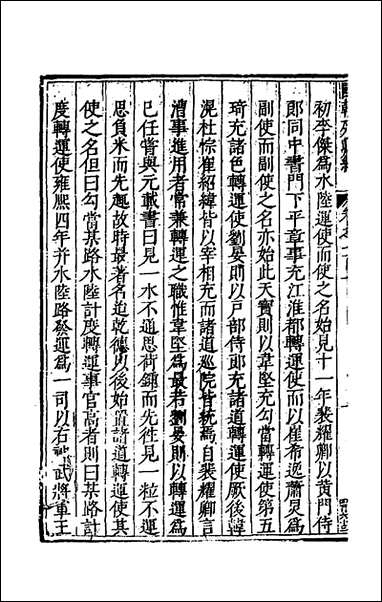 初李傑爲水陸運使而使之名始見十一年裴耀卿以黄門侍
郎同中書門下平章事充江淮都轉運使而以崔希逸蕭炅爲
副使而副使之名亦始此天寶則以韋堅充勾當轉運使第五
琦充諸色轉運使劉晏則以戸部侍郎充諸道轉運使厥後韓
滉杜悰崔紹緯皆以宰相充而諸道巡院皆統焉自裴耀卿言
漕事進用者常兼轉運之職惟韋堅爲最若劉晏則以轉運爲
己任嘗與元載書曰見一水不通思荷鍤而先往見一粒不運
思負米而先趍故時最著名迨乾德以後始置諸道轉運使其
使之名但曰勾當某路水陸計度轉運事官高者則曰某路計
度轉運使雍熙四年并水陸路發運爲一司以右神武將軍王